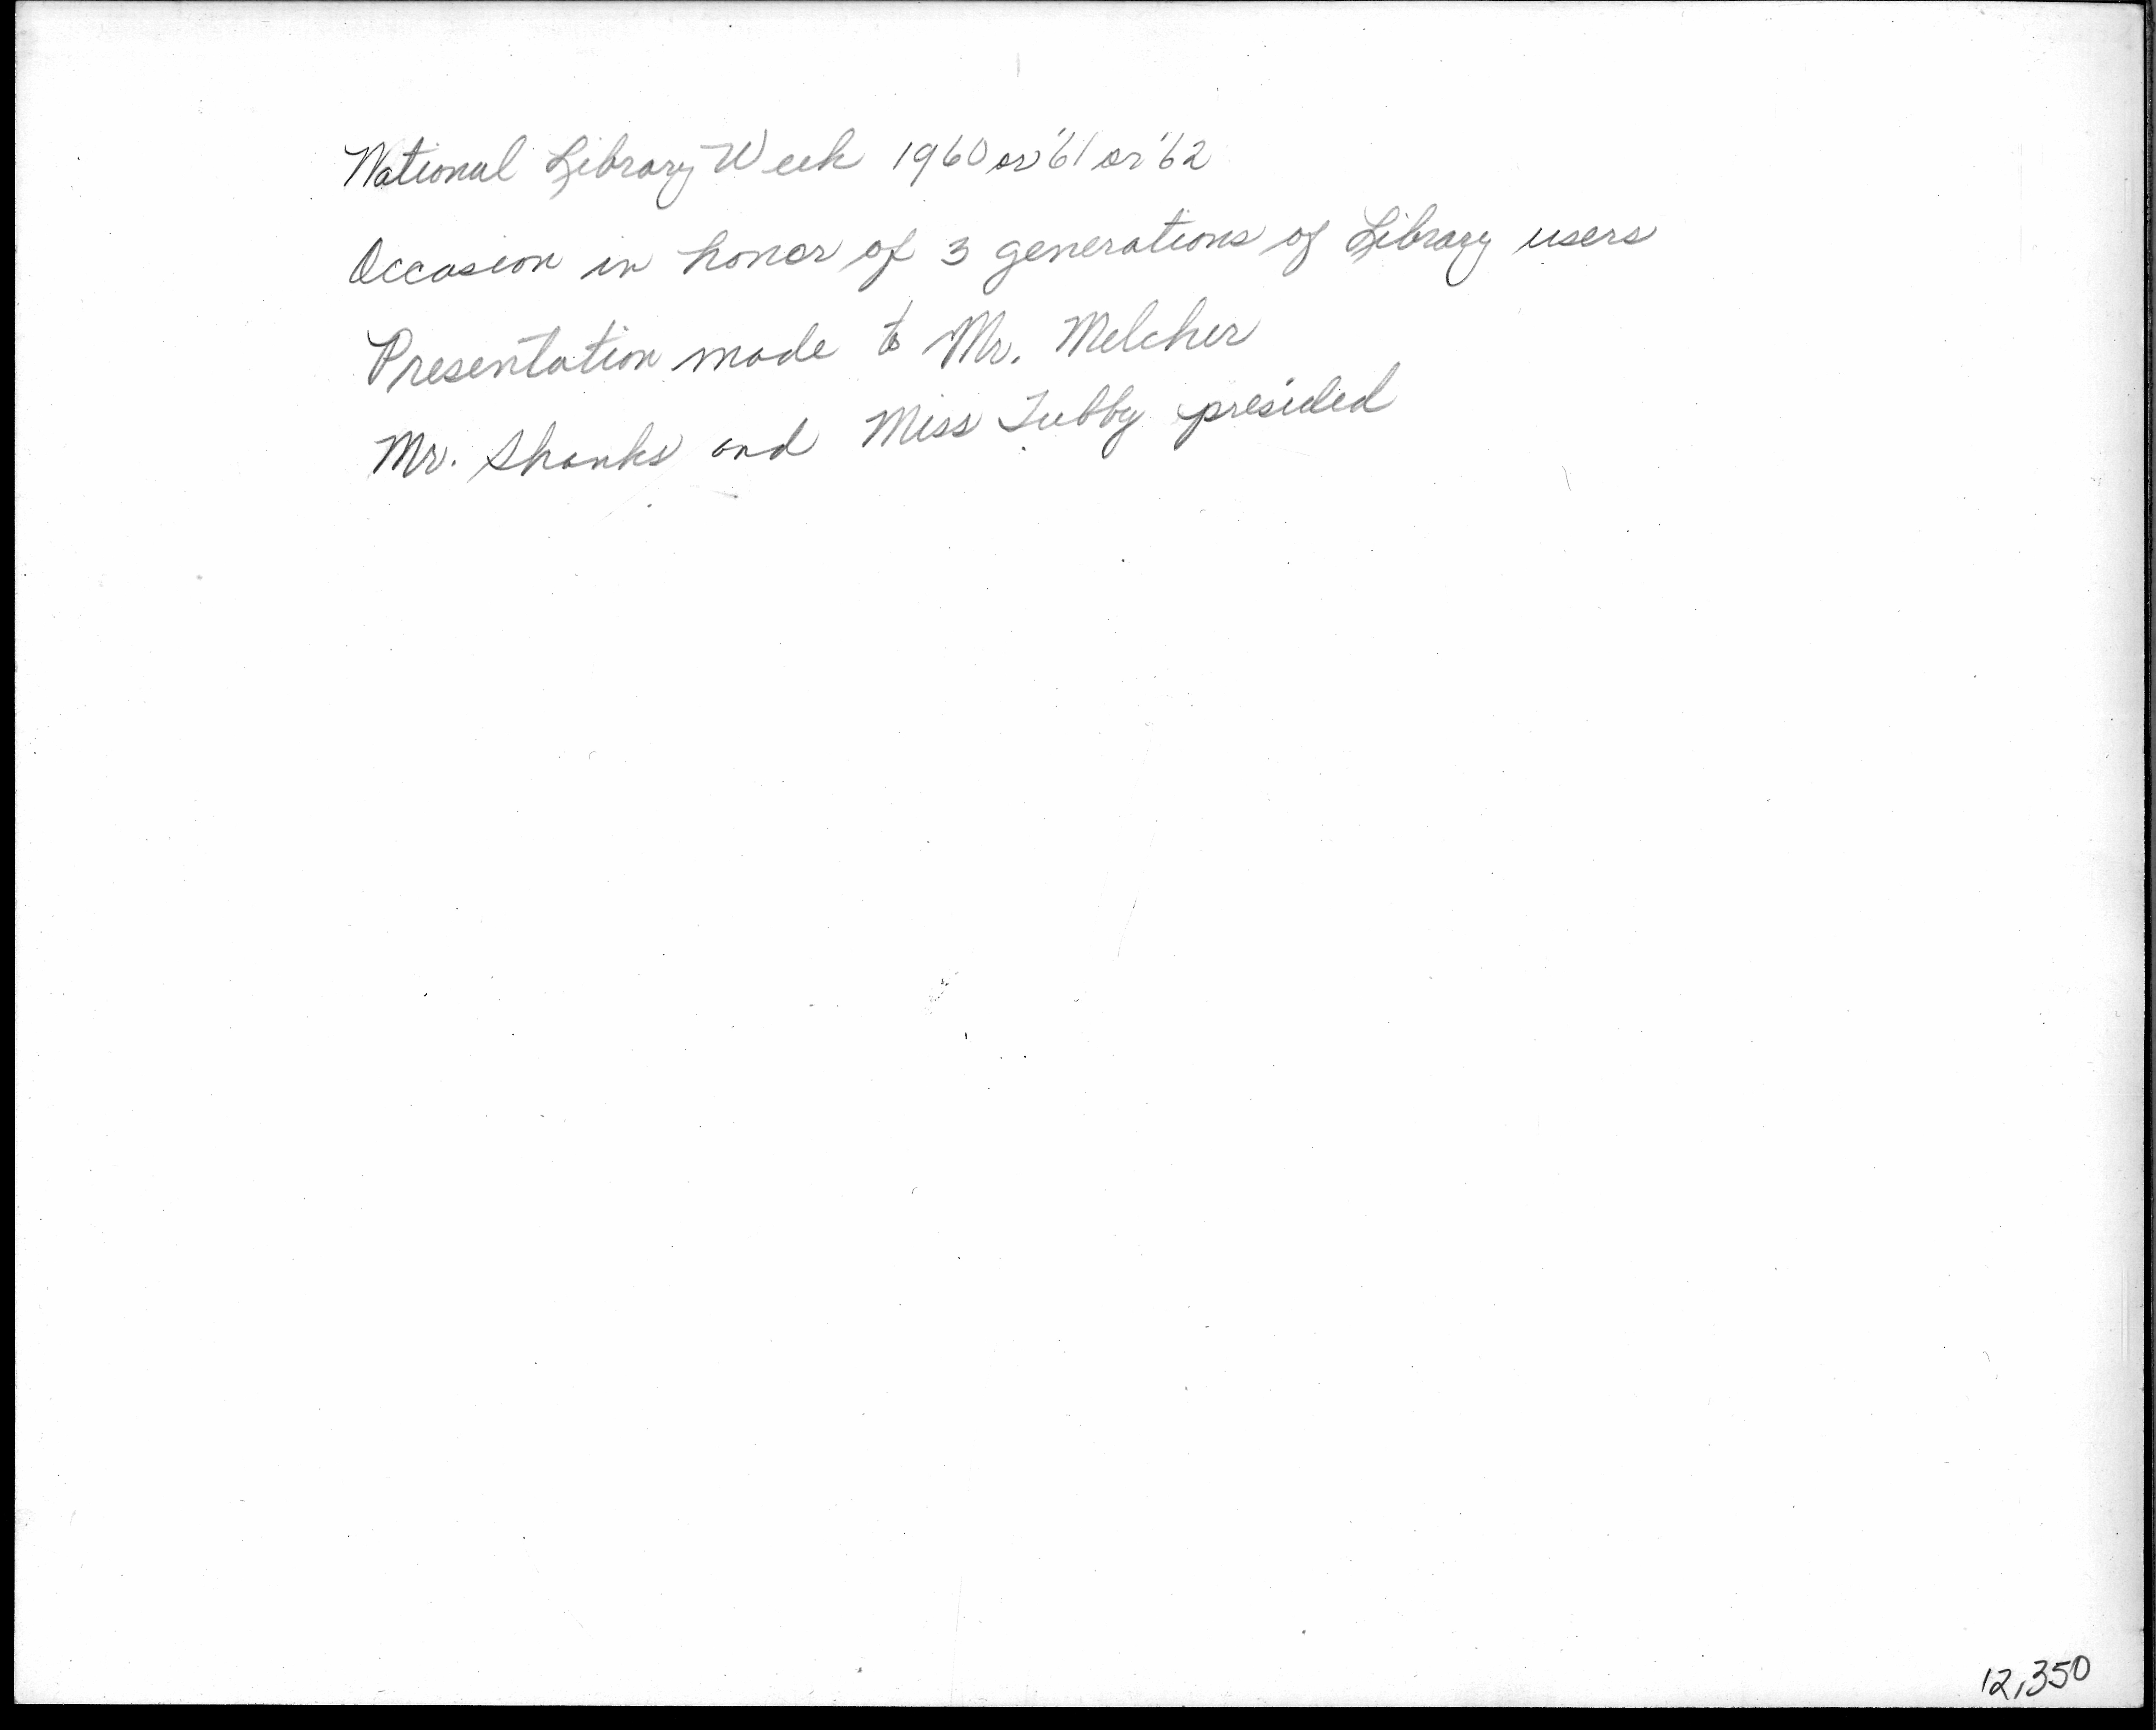 National Library Week 1960 or '61 or '62
Occasion in honor of 3 generations of Library users
Presentation made to Mr. Melcher
Mr. Shanks and Miss Tubby presided
12,350